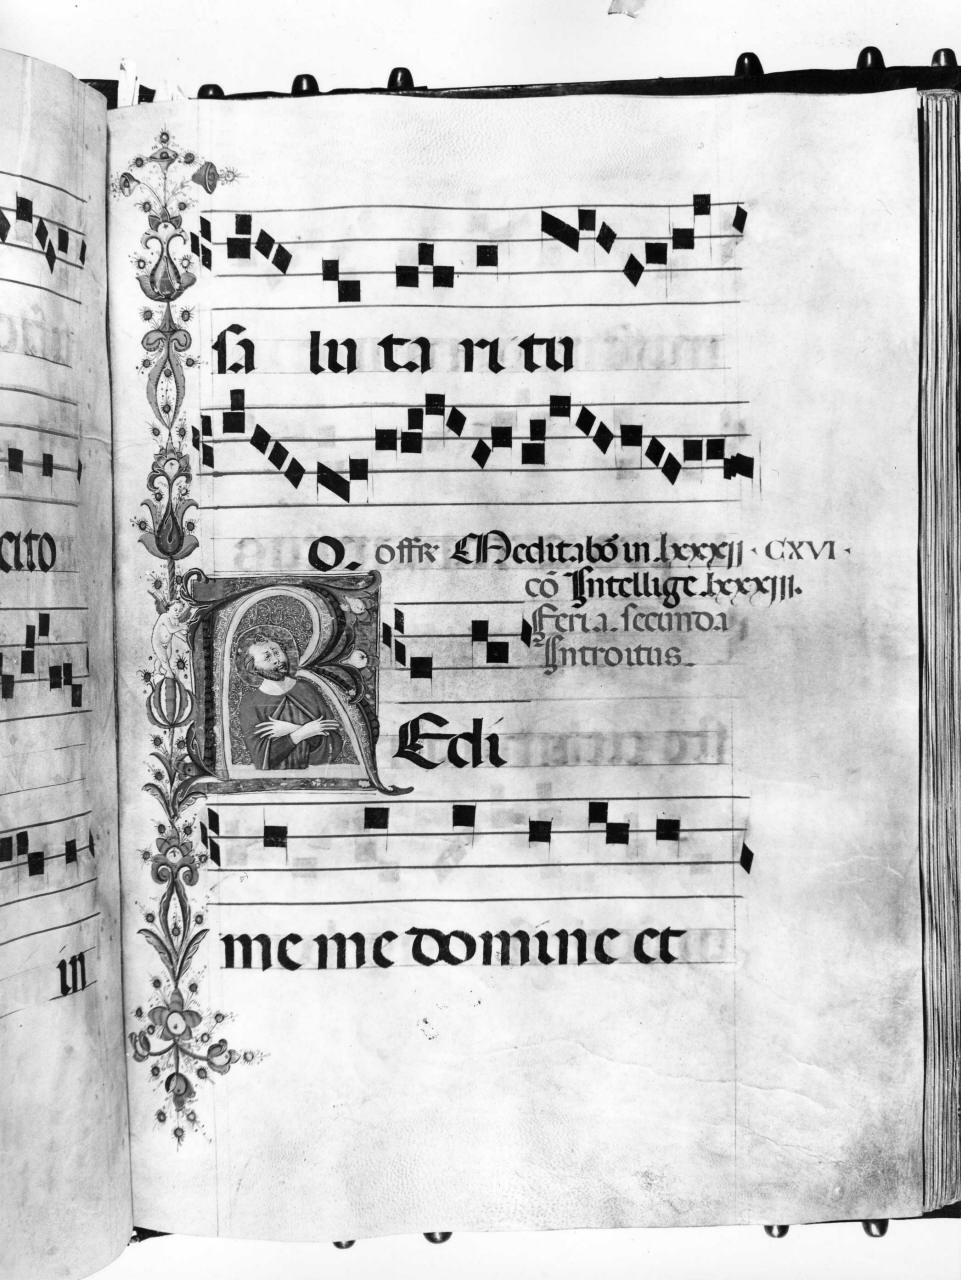 cito
in
sa lu ta ri tu
o. offr̄e Meditabō in. lxxxij · CXVI ·
cō Intellige. lxxxiii.
Feria. secunda
Introitus.
REdi
me me domine et